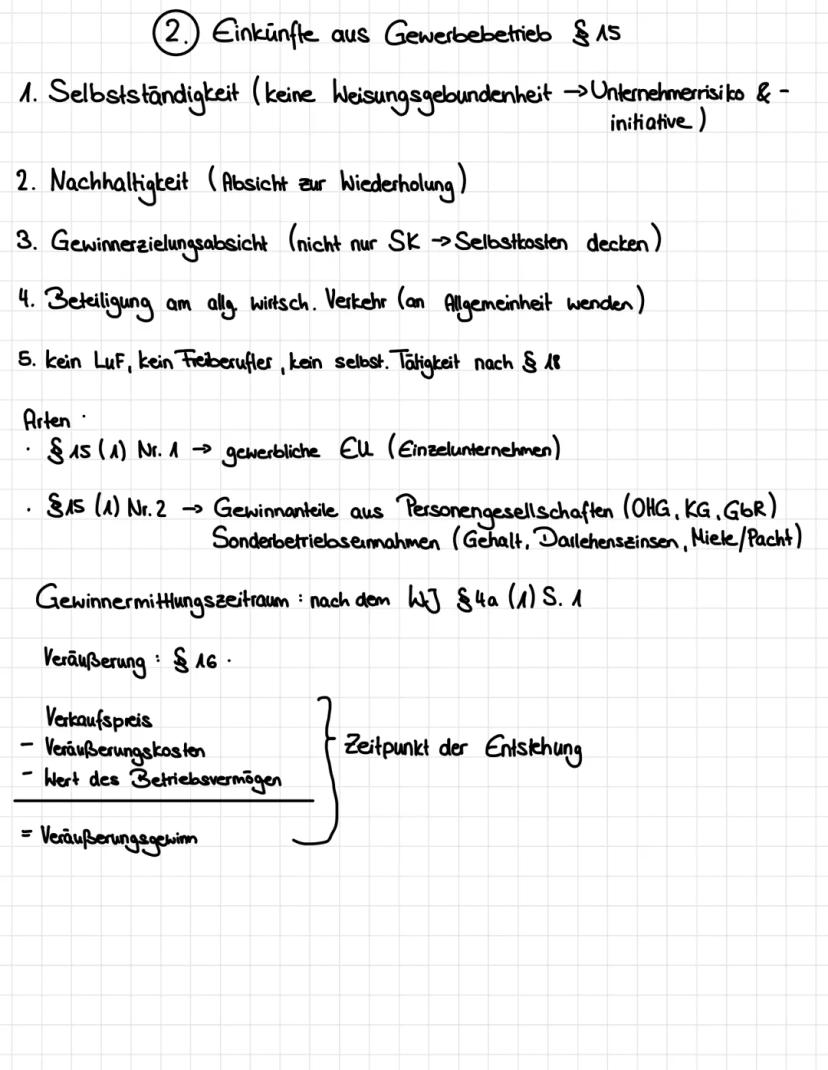 2. Einkünfte aus Gewerbebetrieb § 15
1. Selbstständigkeit (keine Weisungsgebundenheit → Unternehmerrisiko & -
initiative)
2. Nachhaltigkeit (Absicht zur Wiederholung)
3. Gewinnerzielungsabsicht (nicht nur SK → Selbstkosten decken)
4. Beteiligung am allg. wirtsch. Verkehr (an Allgemeinheit wenden)
5. kein LuF, kein Freiberufler, kein selbst. Tätigkeit nach § 18
Arten :
· § 15 (1) Nr. 1 → gewerbliche EU (Einzelunternehmen)
· § 15 (1) Nr. 2 → Gewinnanteile aus Personengesellschaften (OHG, KG, GbR)
Sonderbetriebseinnahmen (Gehalt, Darlehenszinsen, Miete/Pacht)
Gewinnermittlungszeitraum : nach dem WJ § 4a (1) S. 1
Veräußerung : § 16 .
Verkaufspreis
- Veräußerungskosten
- Wert des Betriebsvermögen
Zeitpunkt der Entstehung
= Veräußerungsgewinn